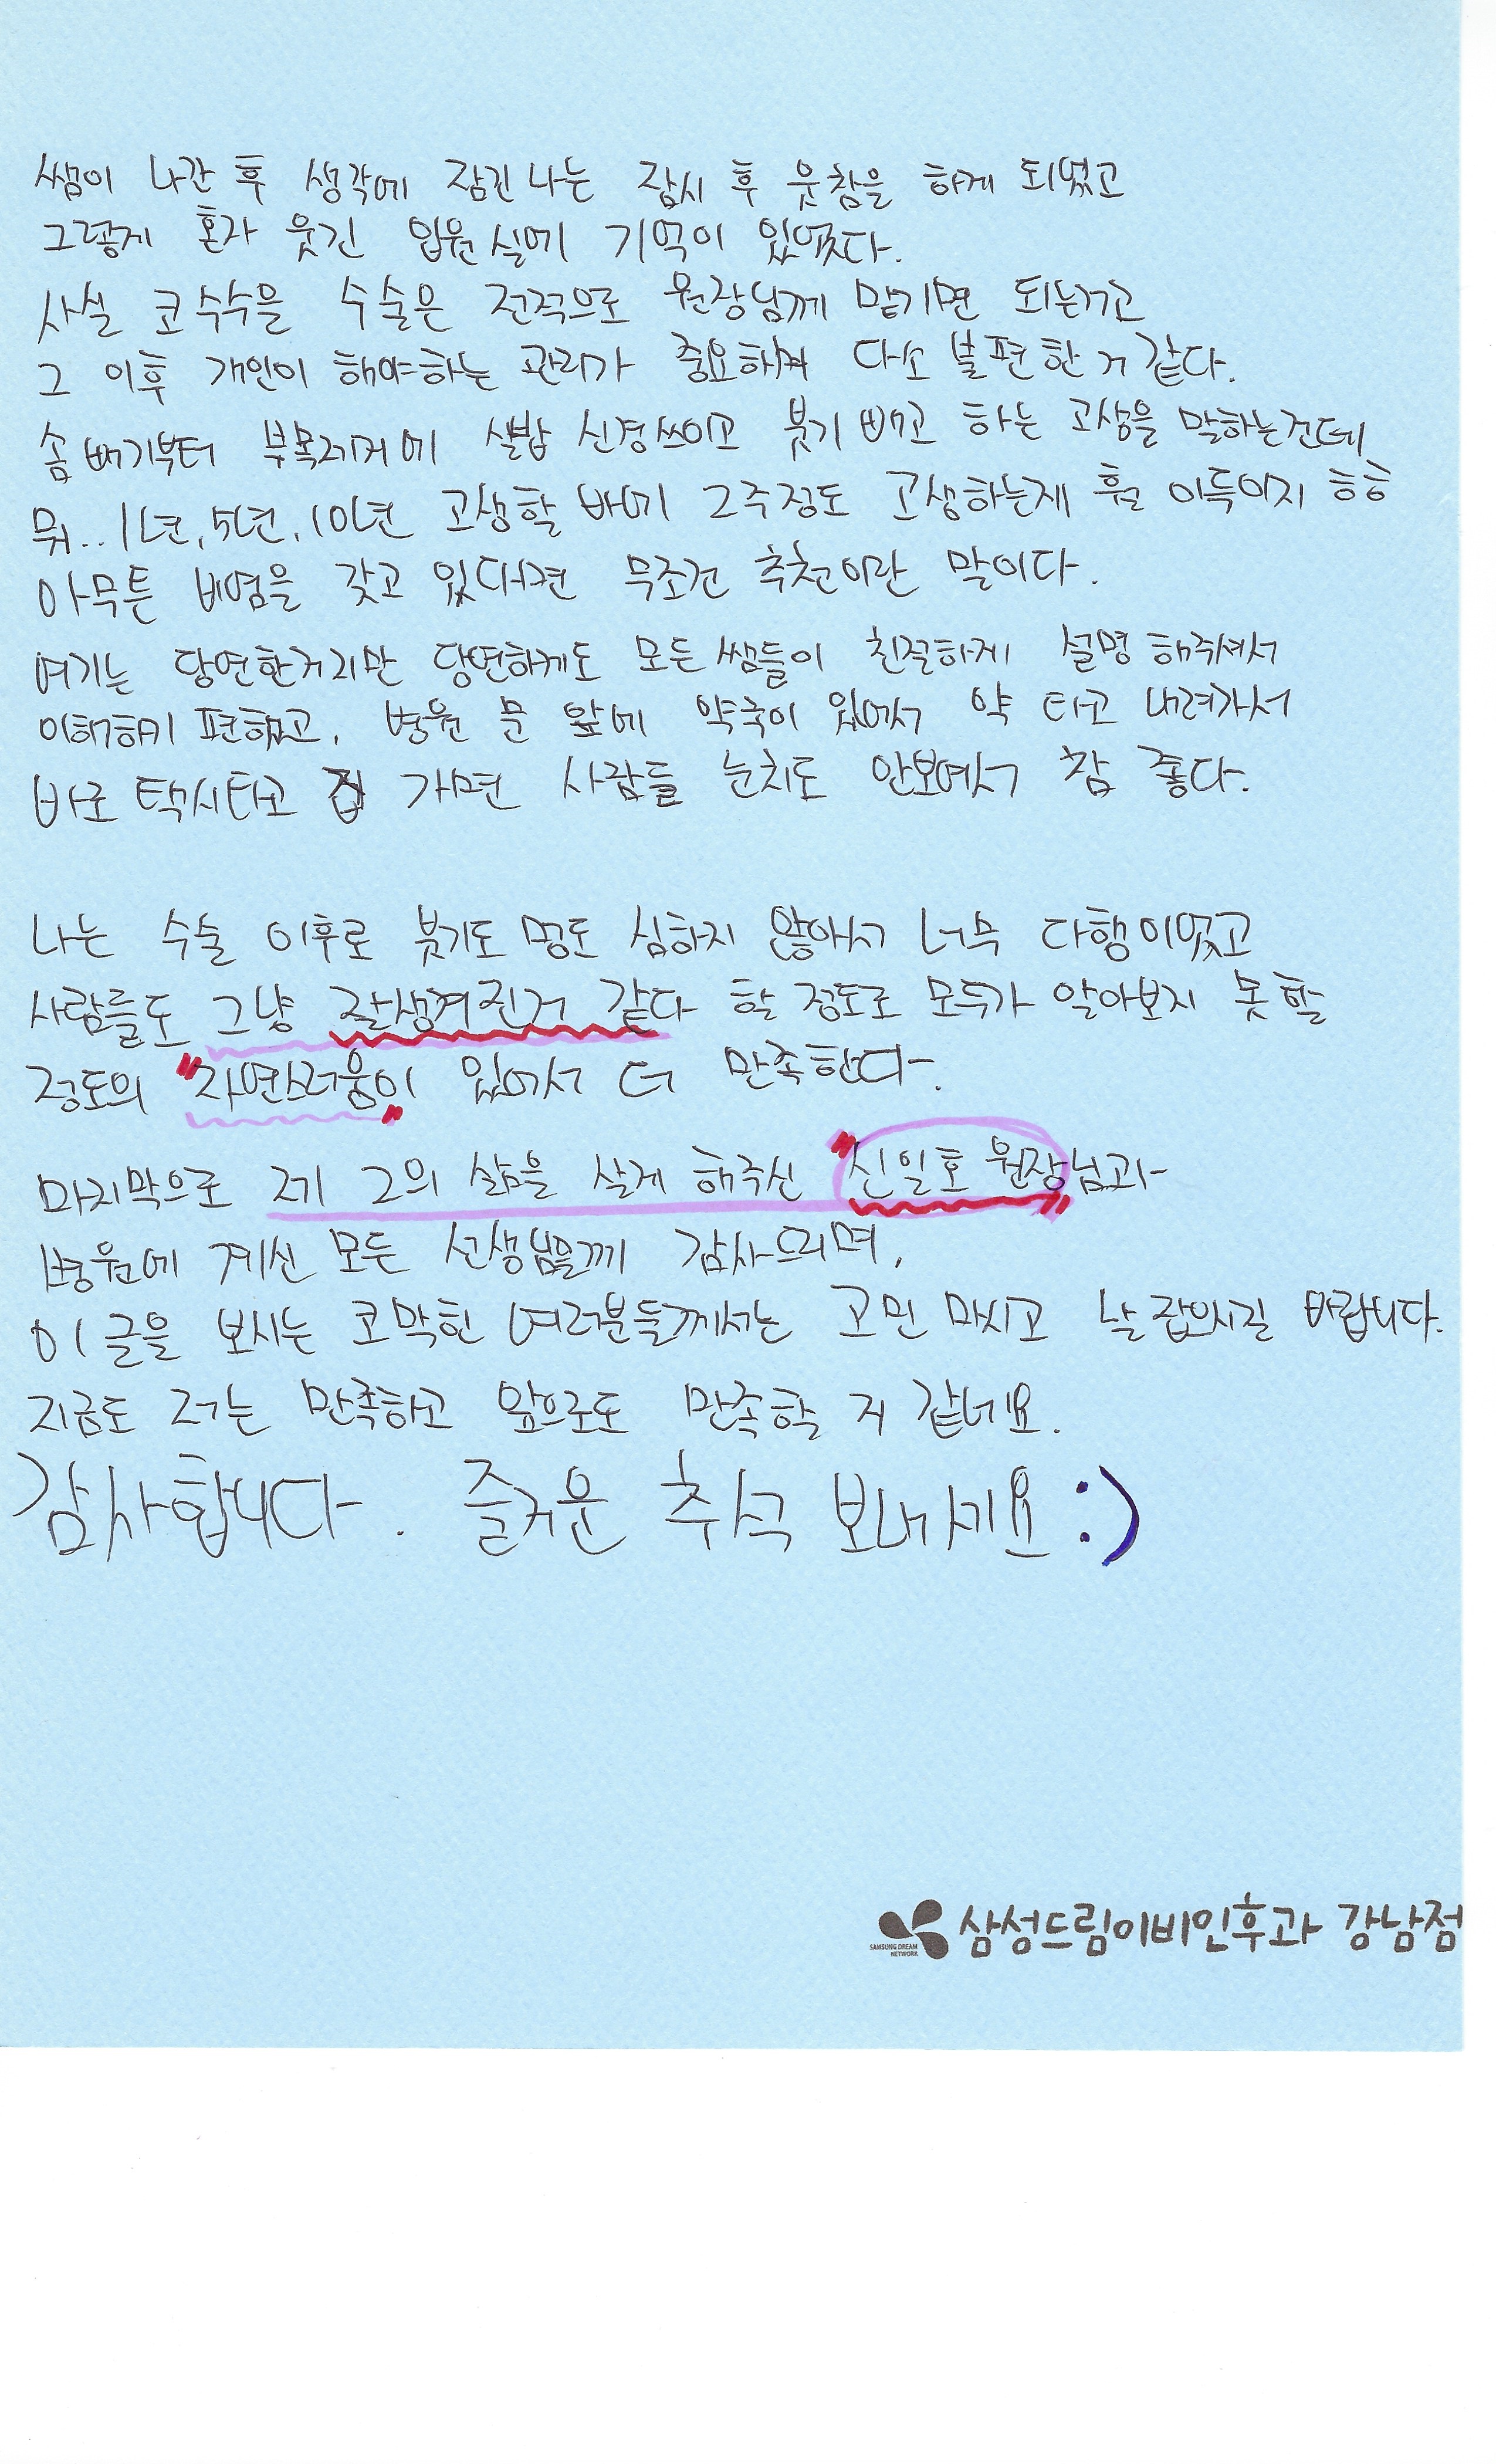 쌤이 나간 후 생각에 잠긴 나는 잠시 후 웃참을 하게 되었고
그렇게 혼자 웃긴 입원실에 기억이 있었다.
사실 코수수을 수술은 전적으로 원장님께 맡기면 되는거고
그 이후 개인이 해야하는 관리가 중요해서 다소 불편한 거 같다.
솜 빼기부터 부목제거에 실밥 신경쓰이고 붓기 빼고 하는 고생을 말하는건데
뭐.. 1년, 5년, 10년 고생할 바에 2주정도 고생하는게 훨 이득이지 ㅎㅎ
아무튼 비염을 갖고 있다면 무조건 추천이란 말이다.
여기는 당연한거지만 당연하게도 모든 쌤들이 친절하게 설명 해주셔서
이해하기 편했고, 병원 문 앞에 약국이 있어서 약 타고 내려가서
바로 택시타고 집 가면 사람들 눈치도 안보여서 참 좋다.
나는 수술 이후로 붓기도 멍도 심하지 않아서 너무 다행이었고
사람들도 그냥 잘생겨진거 같다 할 정도로 모두가 알아보지 못할
정도의 "자연스러움이" 있어서 더 만족한다.
마지막으로 제 2의 삶을 살게 해주신 "신일호 원장"님과
병원에 계신 모든 선생님들께 감사드리며,
이 글을 보시는 코막힌 여러분들께서는 고민 마시고 날 잡으시길 바랍니다.
지금도 저는 만족하고 앞으로도 만족할 거 같네요.
감사합니다. 즐거운 추석 보내세요 :)
삼성드림이비인후과 강남점
SAMSUNG DREAM
NETWORK